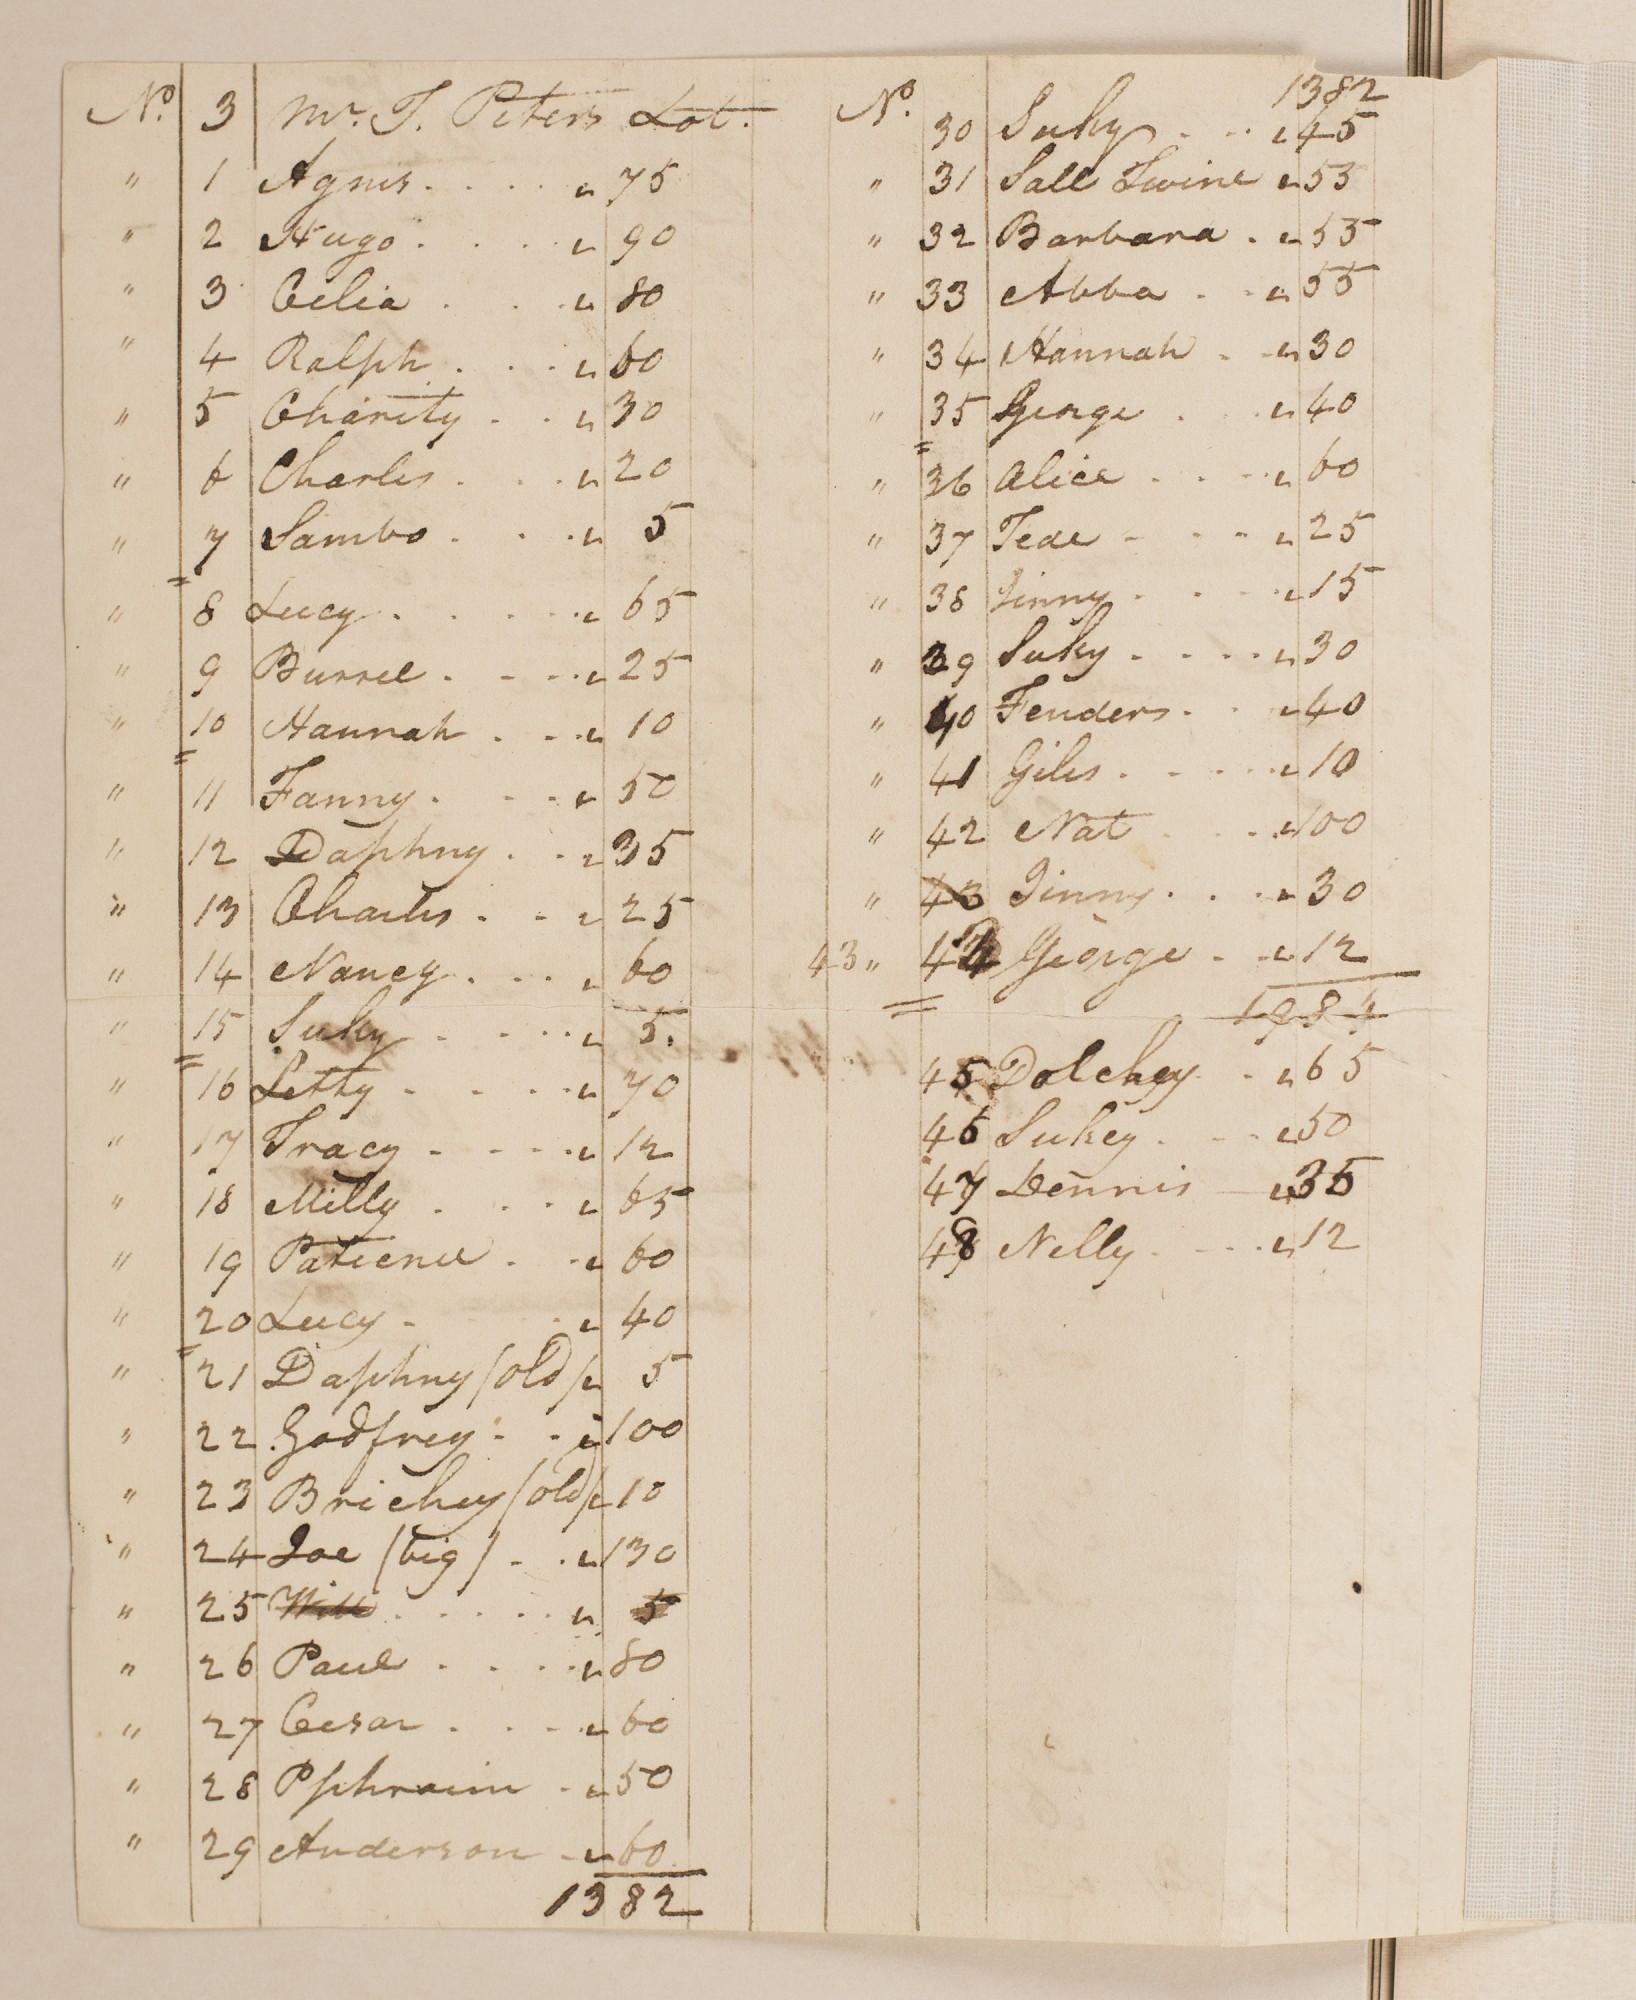 No. 3 Mr. T. Peters Lot.
" 1 Agnis. . . . " 75
" 2 Hugo . . . . " 90
" 3 Celia . . . " 80
" 4 Ralph . . . " 60
" 5 Charity . . " 30
" 6 Charles . . . " 20
" 7 Sambo . . . " 5
" 8 Lucy . . . . . " 65
" 9 Burrel . . . . " 25
" 10 Hannah . . . " 10
" 11 Fanny . . . " 50
" 12 Daphny . . " 35
" 13 Charles . . " 25
" 14 Nancy . . . " 60
" 15 Suky . . . . . " 5.
" 16 Letty . . . . " 70
" 17 Tracy . . . . " 12
" 18 Milly . . . " 65
" 19 Patience . . " 60
" 20 Lucy . . " 40
" 21 Daphny /old/ " 5
" 22 Godfrey . . " 100
" 23 Brichey /old/ " 10
" 24 Joe /big/ . . " 130
" 25 Will . . . . . " 5
" 26 Paul . . . . " 80
" 27 Cesar . . . " 60
" 28 Pphraim . " 50
" 29 Anderson - " 60
1382
No. 1382
30 Suky . . . " 45
" 31 Sall Twine " 55
" 32 Barbara . " 55
" 33 Abba . . " 55
" 34 Hannah . . " 30
" 35 George . . " 40
" 36 Alice . . . . " 60
" 37 Tede . . . " 25
" 38 Jinny . . . " 15
" 39 Suky . . . . " 30
" 40 Fenders . . " 40
" 41 Giles . . . . " 10
" 42 Nat . . . " 100
" 43 Jinny . . . " 30
43 " 44 George . . " 12
1984
45 Dolchey . " 65
46 Sukey . . . " 50
47 Dennis " 35
48 Nelly . . . " 12